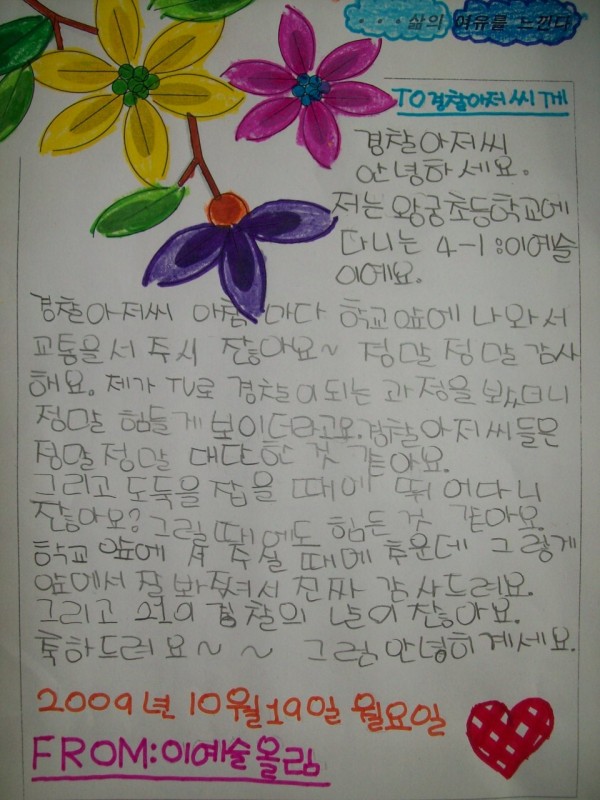 ...삶의 여유를 느낀다
TO경찰아저씨께
경찰아저씨
안녕하세요.
저는 왕궁초등학교에
다니는 4-1:이예슬
이에요.
경찰아저씨 아침 마다 학교앞에 나와서
교통을서 주시 잖아요~ 정말정말감사
해요. 제가 TV로 경찰이되는 과정을 봤더니
정말 힘들게 보이더라고요.경찰아저씨들은
정말정말 대단한 것 같아요.
그리고 도둑을 잡을 때에 뛰어다니
잖아요? 그럴때에도 힘든 것 같아요.
학교 앞에 서 주실 때에 추운데 그렇게
앞에서 잘 봐줘서 진짜 감사드려요.
그리고 21일 경찰의 날이잖아요.
축하드려요~ ~ 그럼안녕히계세요.
2009년 10월19일 월요일
FROM:이예슬올림